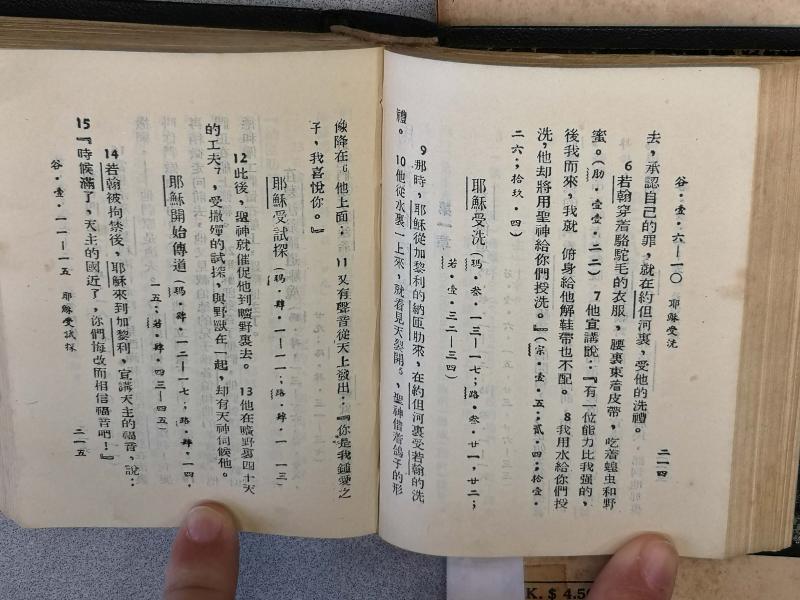 谷·壹·六—一〇 耶穌受洗 二一四
去，承認自己的罪，就在約但河裏，受他的洗禮。
6若翰穿着駱駝毛的衣服，腰裏束着皮帶，吃着蝗虫和野
蜜。(肋·壹壹·二二) 7他宣講說：『有一位能力比我强的，
後我而來，我就 俯身給他解鞋帶也不配。 8我用水給你們授
洗，他却將用聖神給你們授洗。』(宗·壹·五；貳·四；拾壹·
二六；拾玖·四)
耶穌受洗 (瑪·叁·一三—一七；路·叁·廿一，廿二；
若·壹·三二—三四)
9那時，耶穌從加黎利的納匝肋來，在約但河裏受若翰的洗
禮。 10他從水裏一上來，就看見天裂開5，聖神借着鴿子的形
像降在6他上面； 11又有聲音從天上發出：『你是我鍾愛之
子，我喜悅你。』
耶穌受試探 (瑪·肆·一—一一；路·肆·一—一三)
12此後，聖神就催促他到曠野裏去。 13他在曠野裏四十天
的工夫7，受撒殫的試探，與野獸在一起，却有天神伺候他。
耶穌開始傳道 (瑪·肆·一二—一七；路·肆·一四，
一五；若·肆·四三—四五)
14若翰被拘禁後，耶穌來到加黎利，宣講天主的福音，說：
15『時候滿了，天主的國近了，你們悔改而相信福音吧！』
谷·壹·一一—一五 耶穌受試探 二一五
K. $ 4.50